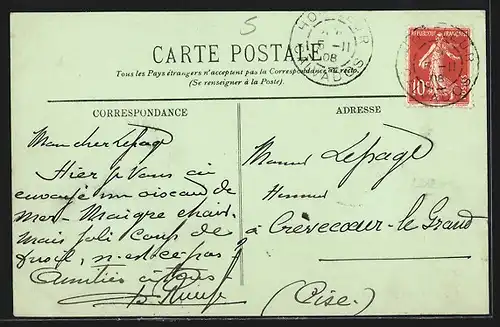 5
HONFLEUR
5 -11
08
CALVADOS
CARTE POSTALE
Tous les Pays étrangers n'acceptent pas la Correspondance au recto.
(Se renseigner à la Poste).
REPUBLIQUE FRANÇAISE
10
CORRESPONDANCE
ADRESSE
Mon cher Lepage
Hier je vous ai
envoyé un oiseau de
mer. Maigre chair
Mais joli coup de
fusil, n'est-ce pas?
Amitiés à tous
Lepage
à Crèvecoeur-le Grand
(Oise)